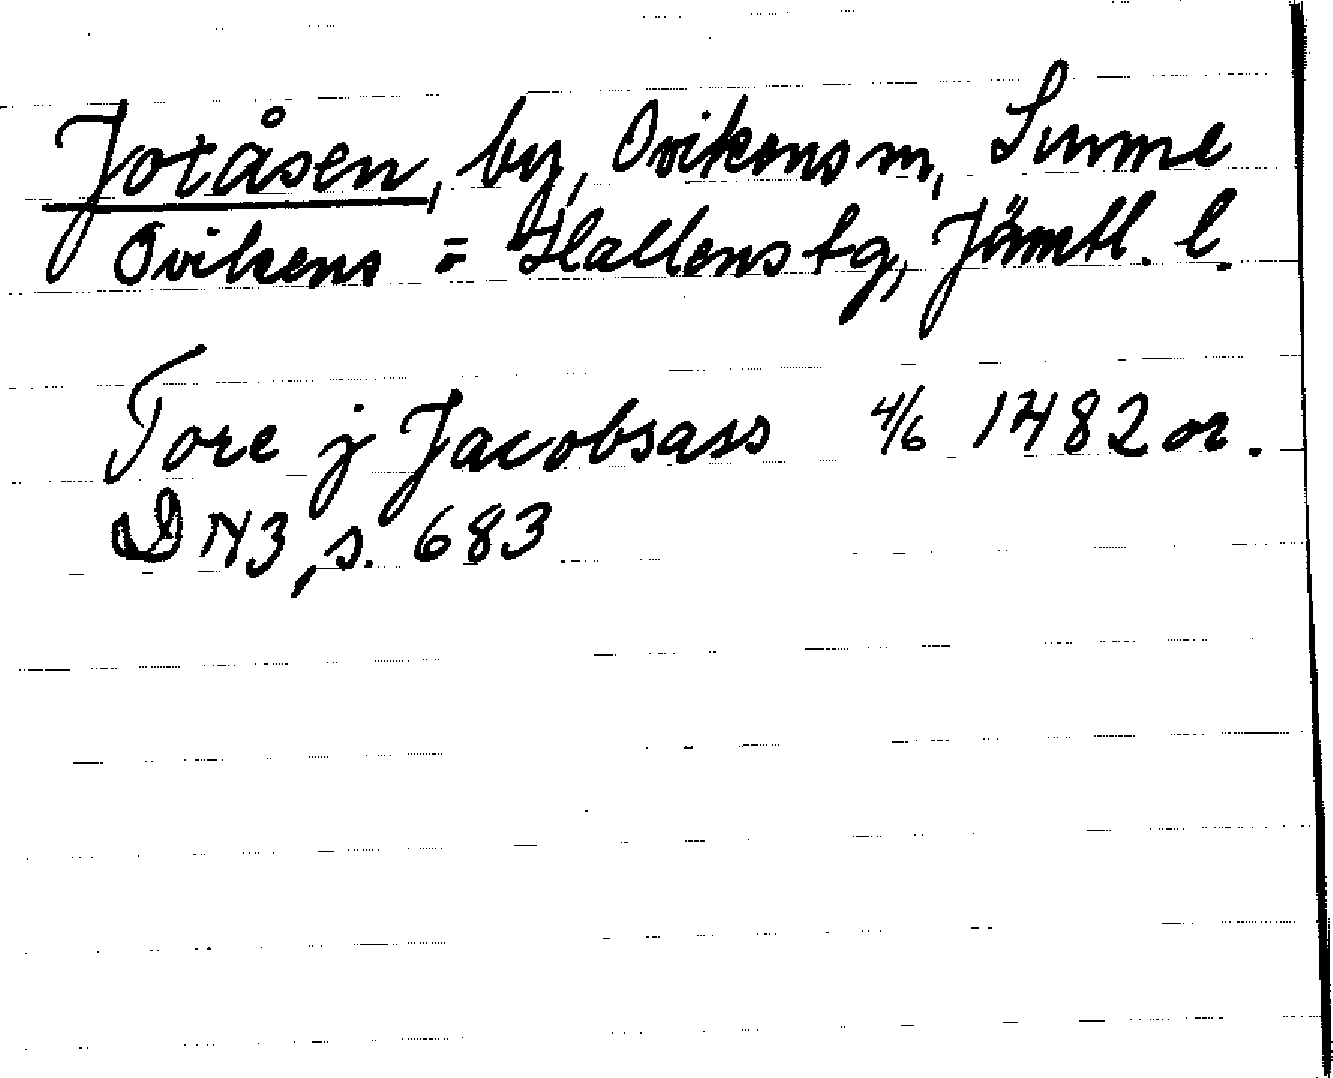 Jotåsen, by, Ovikens sn, Sunne
Ovikens = Hallens tg, Jämtl. l.
Tore j Jacobsass 4/6 1482 or.
DN 3, s. 683